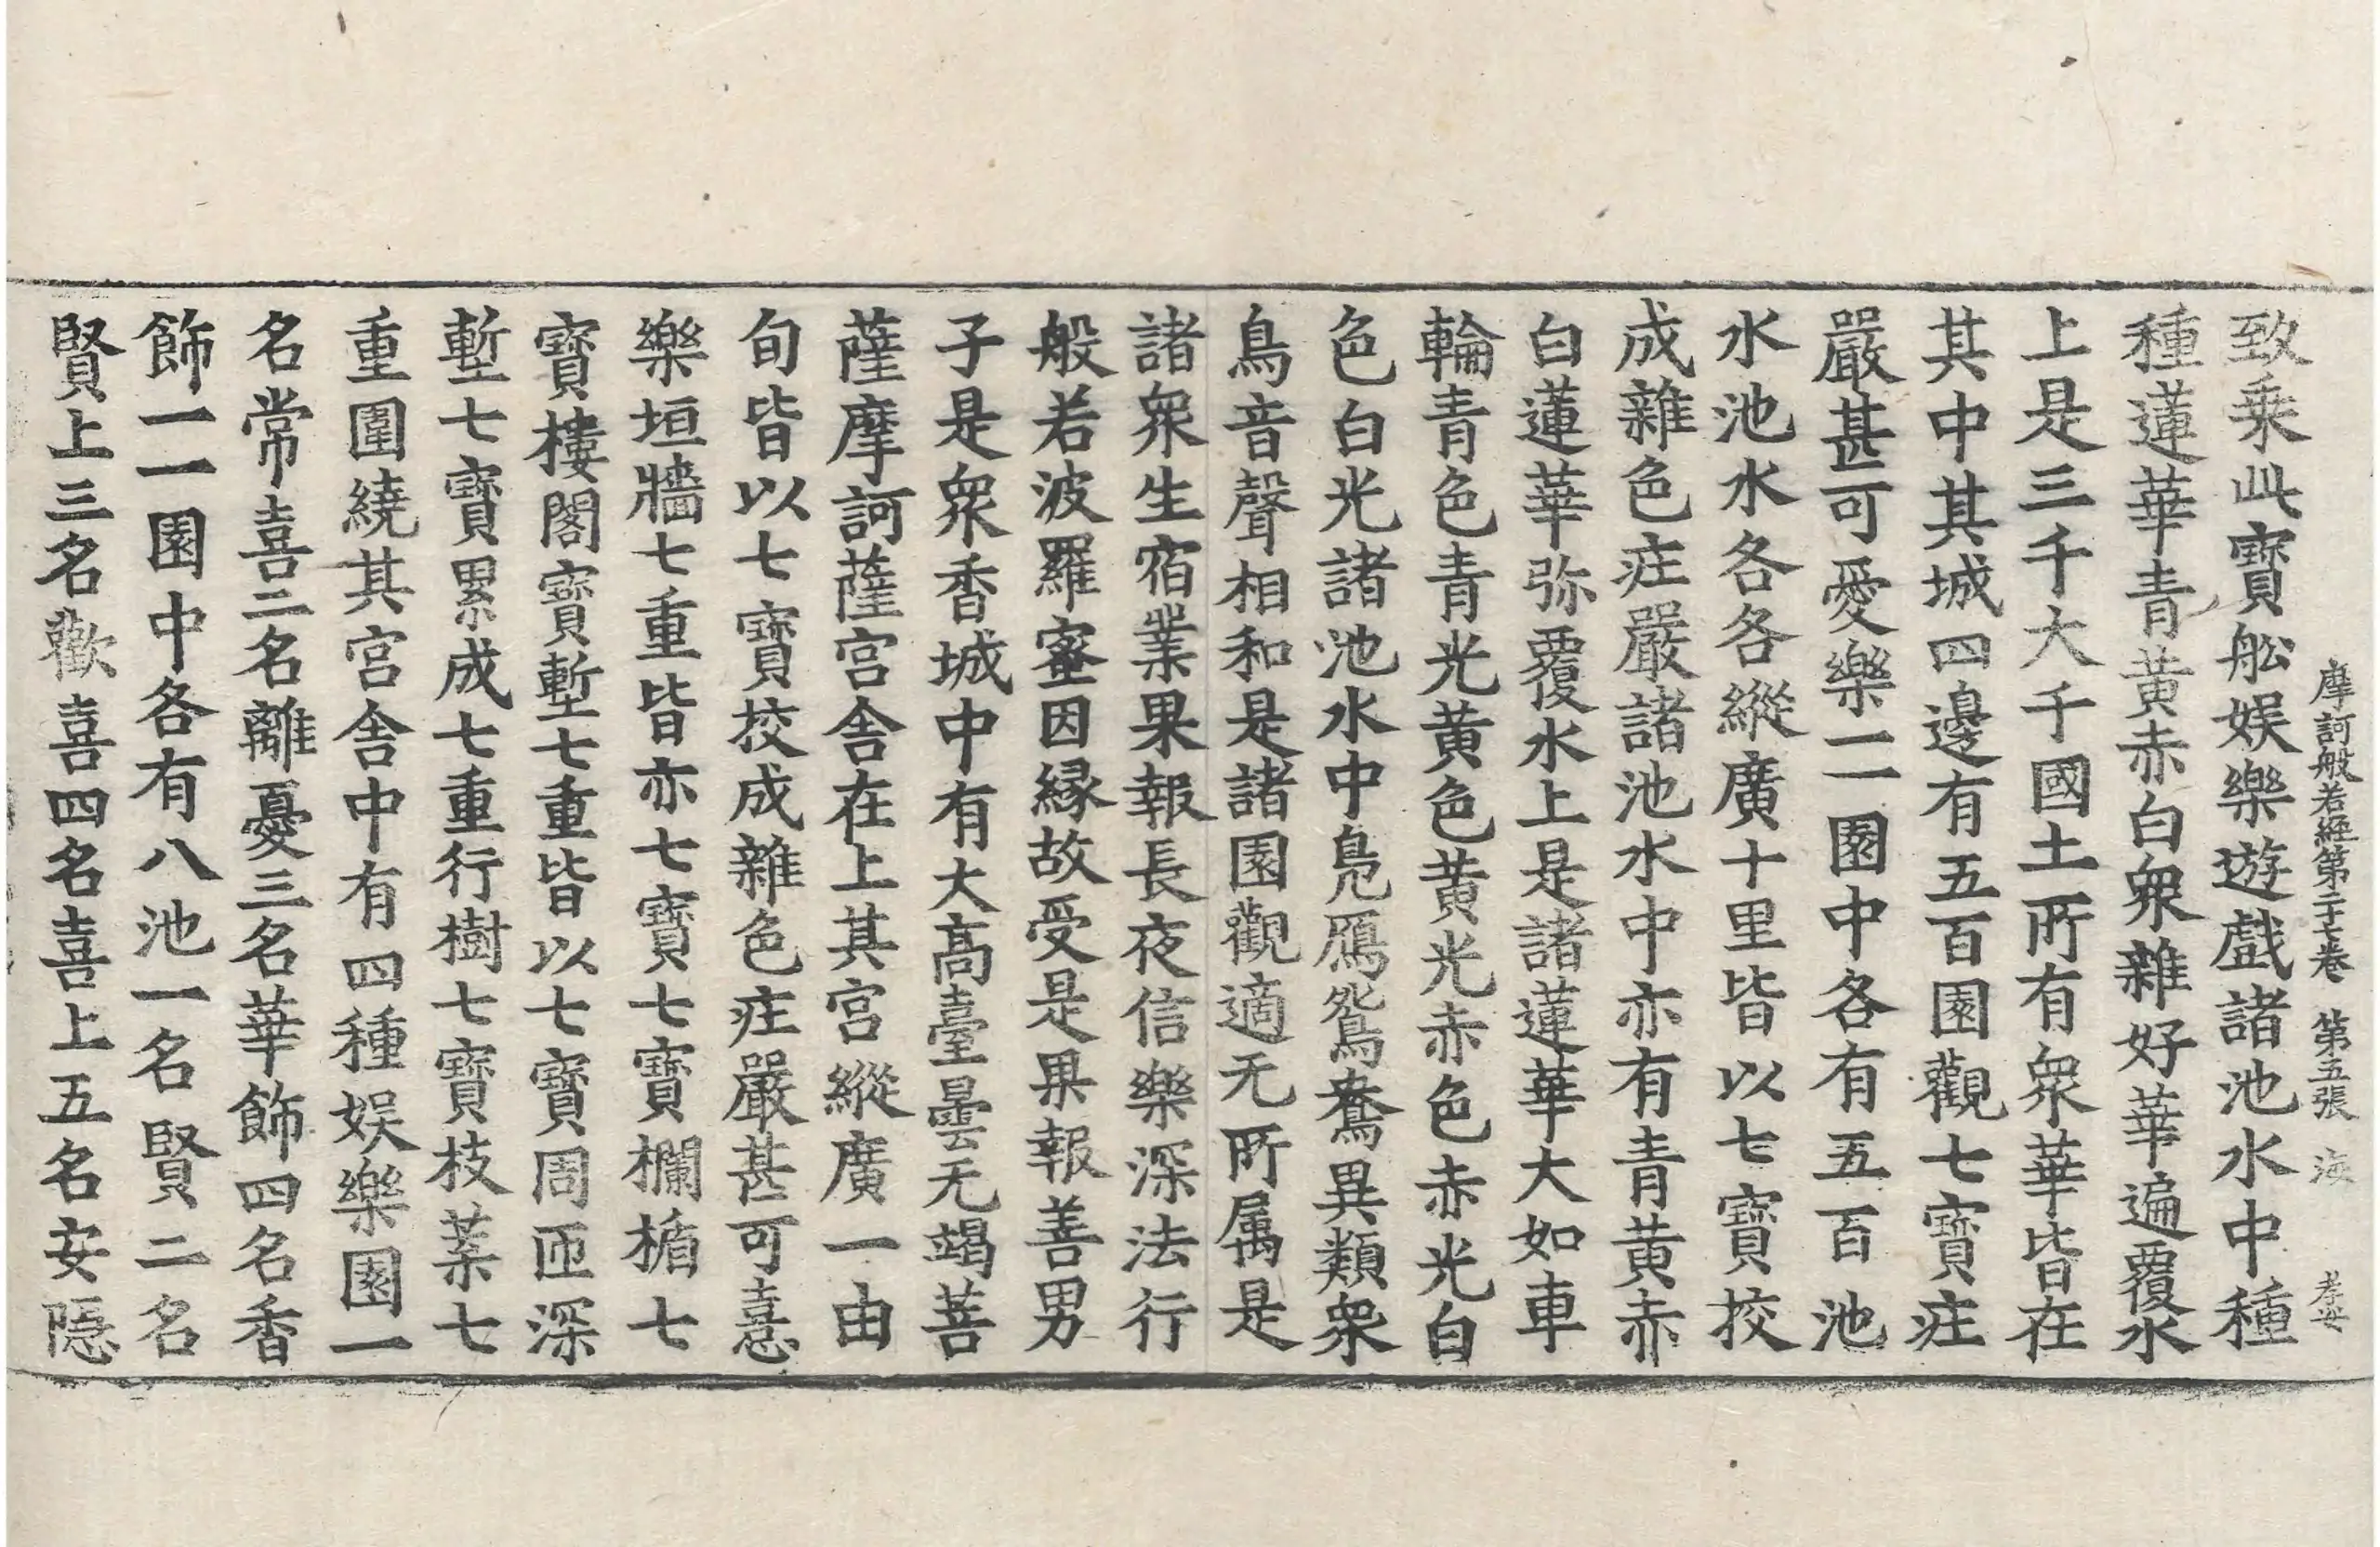 摩訶般若經第二十七卷 第五張 海
致乗此寶舩娱樂遊戲諸池水中種
種蓮華青黄赤白衆雜好華遍覆水
上是三千大千國土所有衆華皆在
其中其城四邊有五百園觀七寶庄
嚴甚可愛樂一一園中各有五百池
水池水各各縱廣十里皆以七寶挍
成雜色庄嚴諸池水中亦有青黄赤
白蓮華弥覆水上是諸蓮華大如車
輪青色青光黄色黄光赤色赤光白
色白光諸池水中鳧鴈鴛鴦異類衆
鳥音聲相和是諸園觀適无所属是
諸衆生宿業果報長夜信樂深法行
般若波羅蜜因縁故受是果報善男
子是衆香城中有大高臺曇无竭菩
薩摩訶薩宫舍在上其宫縱廣一由
旬皆以七寶挍成雜色庄嚴甚可憙
樂垣牆七重皆亦七寶七寶欄楯七
寶樓閣寶塹七重皆以七寶周匝深
塹七寶累成七重行樹七寶枝葉七
重圍繞其宫舍中有四種娱樂園一
名常喜二名離憂三名華飾四名香
飾一一園中各有八池一名賢二名
賢上三名歡喜四名喜上五名安隱